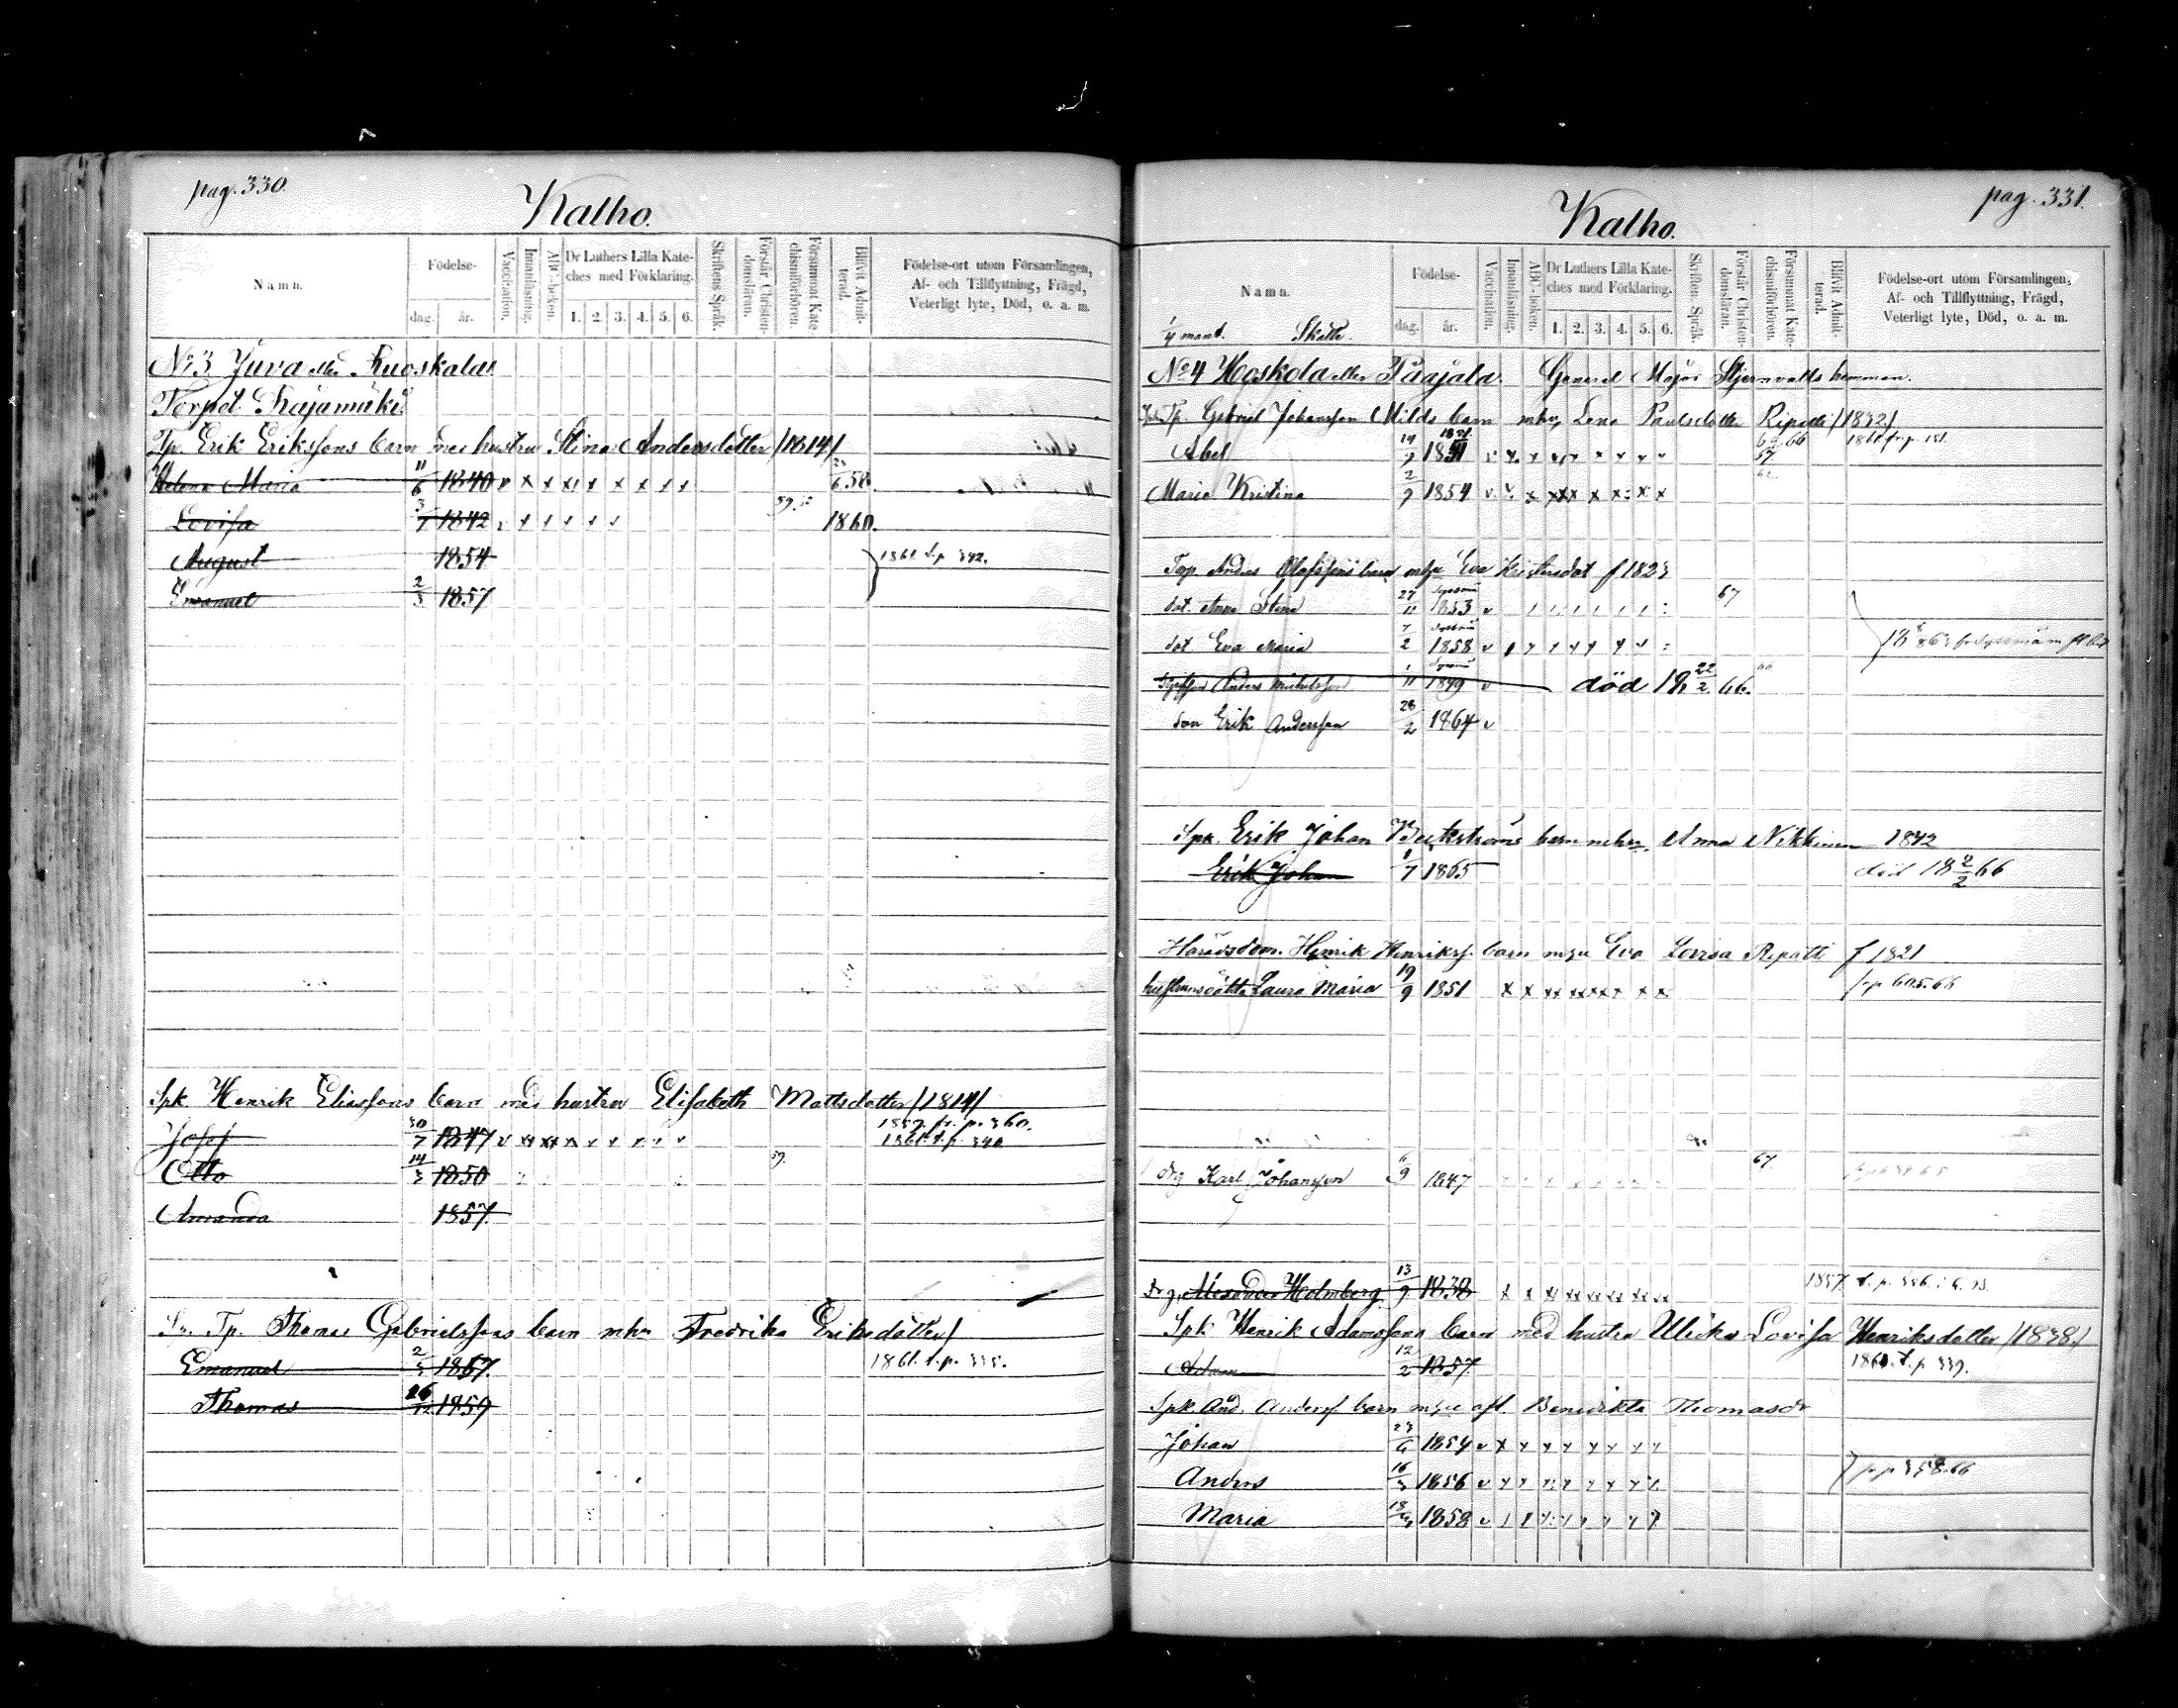 pag. 330.
Kalho.
Namn.
Födelse-
dag.
år.
Vaccination.
Innanläsning.
ABC-boken.
Dr Luthers Lilla Kate-
ches med Förklaring.
1. 2. 3. 4. 5. 6.
Skriftens Språk.
Förstår Christen-
domsläran.
Försummat Kate
chismiförhören.
Blifvit Admit-
terad.
Födelse-ort utom Församlingen,
Af- och Tillflyttning, Frägd,
Veterligt lyte, Död, o. a. m.
No 3 Juva eller Ruoskala
Torpet Rajamäki
Tp. Erik Erikssons barn med hustru Stina Andersdotter /1814/
Helena Maria 11/6 1840 58
Lovisa 3/7 1842 1860.
August 1854 1861 t.p. 342.
Emanuel 2/3 1857
Spk. Henrik Eliassons barn med hustru Elisabeth Mattsdotter /1814/
1857. fr. p. 360.
Josef 30/7 1847 1861. t.p. 340
Otto 14/3 1850 59.
Amanda 1857.
Sn. Tp. Thomas Gabrielssons barn mhu Fredrika Eriksdotter/
Emanuel 1857. 1861. t.p. 335.
Thomas 26/12 1859
pag. 331.
Kalho.
Namn.
1/4 mant. Skatte.
Födelse-
dag.
år.
Vaccination.
Innanläsning.
ABC-boken.
Dr Luthers Lilla Kate-
ches med Förklaring.
1. 2. 3. 4. 5. 6.
Skriftens Språk.
Förstår Christen-
domsläran.
Försummat Kate-
chismiförhören.
Blifvit Admit-
terad.
Födelse-ort utom Församlingen,
Af- och Tillflyttning, Frägd,
Veterligt lyte, Död, o. a. m.
No 4 Hoskola eller Paajala. General Major Stjernvalls hemman.
Tp. Gabriel Johansson Milds barn mhu Lena Paulsdotter Ripatti /1832/
Abel 14/7 1851 66
Maria Kristina 2/7 1854
Torp. Anders Olofssons barn mhu Eva Kristersdot f 1823
dot. Anna Stina 27/11 1853 67
dot Eva Maria 7/2 1858
Anders Michelsson 1/11 1849 död 18 22/2 66.
son Erik Andersson 28/2 1864
Spk. Erik Johan Beckströms barn mhu. Anna Nikkinen 1842
Erik Johan 1/7 1865 död 18 2/2 66
Häradsdom. Henrik Henrikss. barn mhu Eva Lovisa Ripatti f 1821
hustrunsdotter Laura Maria 19/9 1851 fr p 605. 66
drg Karl Johansson 6/9 1847 67.
Drg. Alexander Holmberg 13/9 1838 1857. t. p. 336.
Spk Henrik Adamssons barn med hustru Ulrika Lovisa Henriksdotter /1838/
Adam 12/2 1857 1860. t. p. 339.
Spk. And. Anderss barn mhu afl. Benedikta Thomasdr
Johan 23/6 1854
Anders 16/3 1856 fr. p. 358. 66
Maria 1858